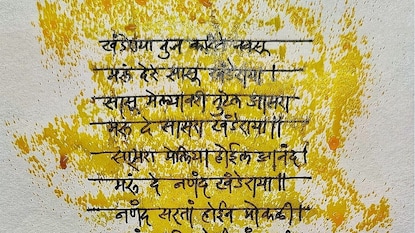 खंडेराया तुज करिते नवसू
मरू देरे सासू खंडेराया।
सासू मेल्यावरी तुटेल आसरा
मरू दे सासरा खंडेराया॥
सासरा मेलिया होईल आनंद।
मरू दे नणंद खंडेराया॥
नणंद सरतां होईन मोकळी।